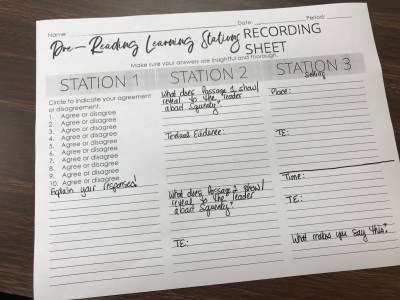 Name: Date: Period:
Pre-Reading Learning Stations RECORDING
SHEET
Make sure your answers are insightful and thorough.
STATION 1
Circle to indicate your agreement
or disagreement.
1. Agree or disagree
2. Agree or disagree
3. Agree or disagree
4. Agree or disagree
5. Agree or disagree
6. Agree or disagree
7. Agree or disagree
8. Agree or disagree
9. Agree or disagree
10. Agree or disagree
Explain your responses!
STATION 2
What does Passage 1 show/
reveal to the reader
about Squeaky?
Textual Evidence:
What does Passage 2 show/
reveal to the reader
about Squeaky?
TE:
STATION 3
Setting
Place:
TE:
Time:
TE:
What makes you say this?